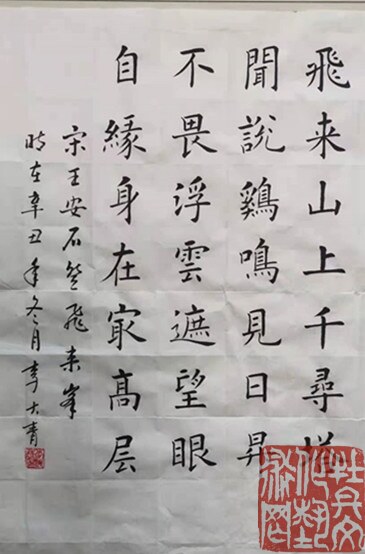 飛来山上千尋塔
聞說鷄鳴見日昇
不畏浮雲遮望眼
自緣身在冣高层
宋王安石登飛来峯
時在辛丑年冬月李大青